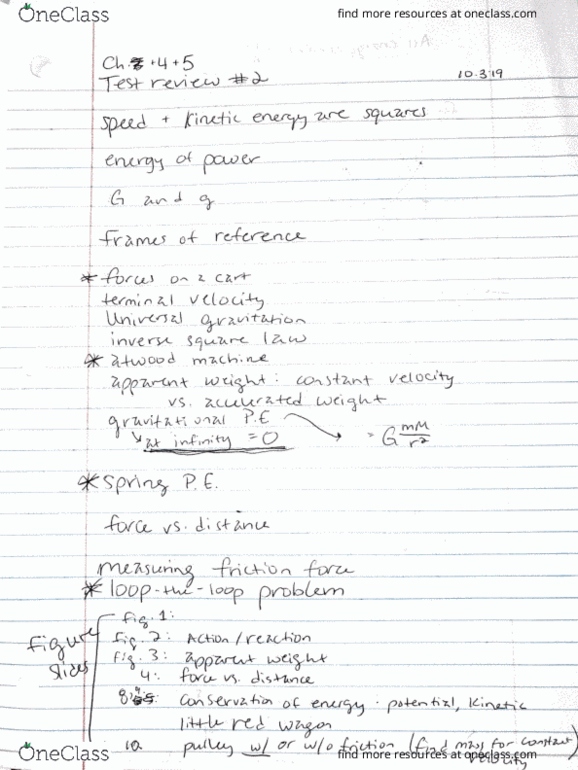 OneClass
find more resources at oneclass.com
Ch. +4+5
Test review #2
10.3.19
speed + Kinetic energy are squares
energy of power
G and g
frames of reference
* forces on a cart
terminal velocity
Universal gravitation
inverse square law
* atwood machine
apparent weight: constant velocity
vs. accelerated weight
gravitational P.E
↳ at infinity = 0
= G mM/r²
* Spring P.E.
force vs. distance
measuring friction force
* loop-the-loop problem
figure slides
fig. 1:
fig. 2: Action/reaction
fig. 3: apparent weight
4: force vs. distance
conservation of energy · potential, kinetic
little red wagon
10 pulley w/ or w/o friction (find mass for constant velocity)
OneClass
find more resources at oneclass.com